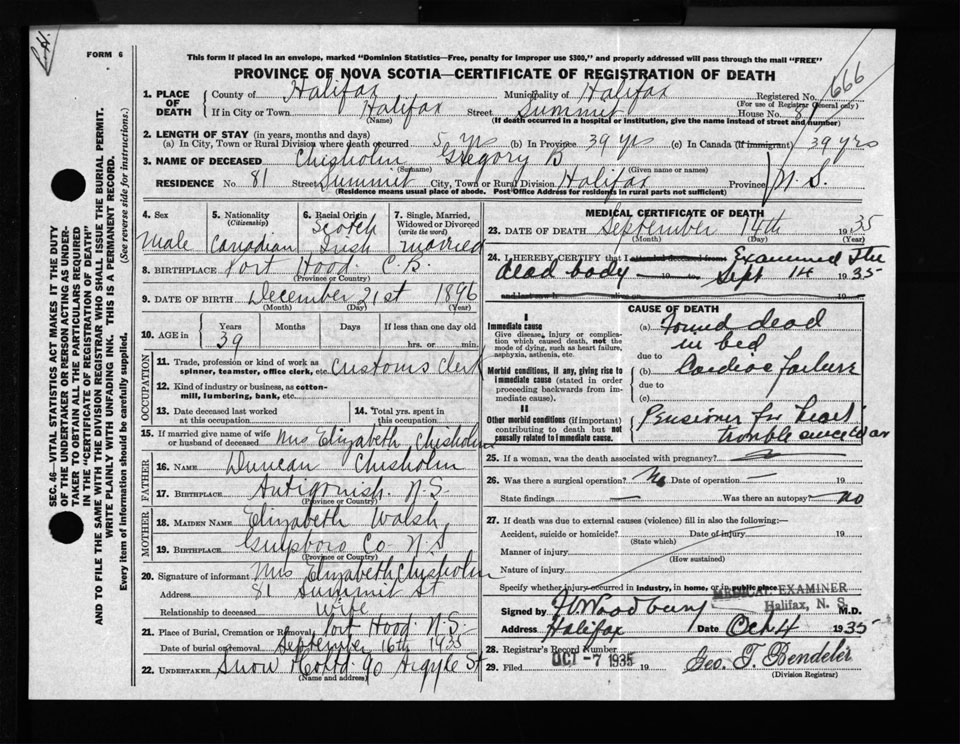 FORM 6
This form if placed in an envelope, marked "Dominion Statistics—Free, penalty for improper use $300," and properly addressed will pass through the mail "FREE"
PROVINCE OF NOVA SCOTIA—CERTIFICATE OF REGISTRATION OF DEATH
666
1. PLACE OF DEATH County of Halifax Municipality of Halifax Registered No.
(For use of Registrar General only)
If in City or Town Halifax Street Summit House No. 81
(Name) (If death occurred in a hospital or institution, give the name instead of street and number)
2. LENGTH OF STAY (in years, months and days)
(a) In City, Town or Rural Division where death occurred 5 yrs (b) In Province 39 yrs (c) In Canada (if immigrant) 39 yrs
3. NAME OF DECEASED Chisholm Gregory B.
(Surname) (Given name or names)
RESIDENCE No 81 Street Summit City, Town or Rural Division Halifax Province N.S.
(Residence means usual place of abode. Post Office Address for residents in rural parts not sufficient)
4. Sex 5. Nationality (Citizenship) 6. Racial Origin 7. Single, Married, Widowed or Divorced (write the word)
Male Canadian Scotch Irish married
8. BIRTHPLACE Port Hood C.B.
(Province or Country)
9. DATE OF BIRTH December 21st 1896
(Month) (Day) (Year)
10. AGE in Years Months Days If less than one day old
39 hrs. or min.
OCCUPATION
11. Trade, profession or kind of work as spinner, teamster, office clerk, etc. Customs Clerk
12. Kind of industry or business, as cotton-mill, lumbering, bank, etc.
13. Date deceased last worked at this occupation
14. Total yrs. spent in this occupation
15. If married give name of wife or husband of deceased Mrs Elizabeth Chisholm
FATHER
16. NAME Duncan Chisholm
17. BIRTHPLACE Antigonish. N.S.
(Province or Country)
MOTHER
18. MAIDEN NAME Elizabeth Walsh
19. BIRTHPLACE Guysboro Co N.S
(Province or Country)
20. Signature of informant Mrs Elizabeth Chisholm
Address 81 Summit St
Relationship to deceased Wife
21. Place of Burial, Cremation or Removal Port Hood N.S.
Date of burial or removal September 16th 1935
22. UNDERTAKER Snow 90 Argyle St
(Name and address)
MEDICAL CERTIFICATE OF DEATH
23. DATE OF DEATH September 14th 1935
(Month) (Day) (Year)
24. I HEREBY CERTIFY that I attended deceased from Examined the
dead body — to Sept 14 1935
and last saw h alive on 19
I
Immediate cause
Give disease, injury or complication which caused death, not the mode of dying, such as heart failure, asphyxia, asthenia, etc.
Morbid conditions, if any, giving rise to immediate cause (stated in order proceeding backwards from immediate).
II
Other morbid conditions (if important) contributing to death but not causally related to immediate cause.
CAUSE OF DEATH
(a) Found dead
in bed
due to
(b) Cardiac failure
due to
(c)
Pensioner for heart
trouble since war
25. If a woman, was the death associated with pregnancy? —
26. Was there a surgical operation? No Date of operation —
State findings — Was there an autopsy? No
27. If death was due to external causes (violence) fill in also the following:—
Accident, suicide or homicide? Date of injury 19
(State which)
Manner of injury
(How sustained)
Nature of injury
Specify whether injury occurred in industry, in home, or in public place
MEDICAL EXAMINER
Halifax, N. S.
Signed by Woodbury M.D.
Address Halifax Date Oct 4 1935
28. Registrar's Record Number
29. Filed OCT -7 1935 19 Geo. T. Bendeler
(Division Registrar)
SEC. 46—VITAL STATISTICS ACT MAKES IT THE DUTY
OF THE UNDERTAKER OR PERSON ACTING AS UNDER-
TAKER TO OBTAIN ALL THE PARTICULARS REQUIRED
IN THE "CERTIFICATE OF REGISTRATION OF DEATH"
(See reverse side for instructions.)
AND TO FILE THE SAME WITH THE DIVISION REGISTRAR WHO SHALL ISSUE THE BURIAL PERMIT.
WRITE PLAINLY WITH UNFADING INK. THIS IS A PERMANENT RECORD.
Every item of information should be carefully supplied.